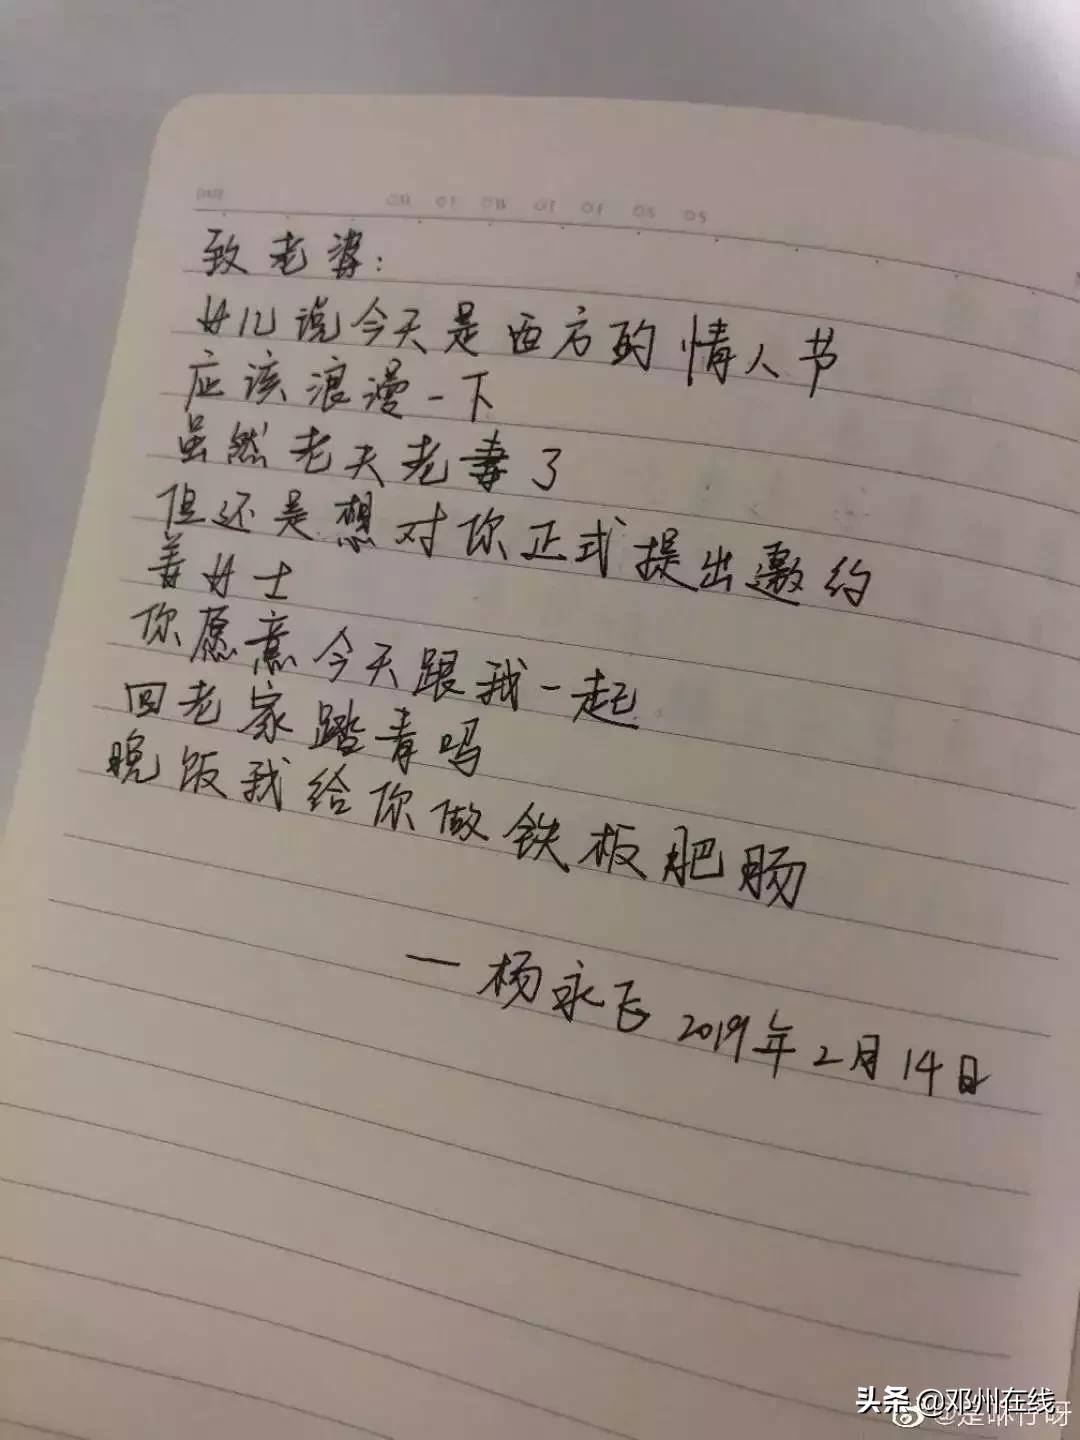 致老婆：
女儿说今天是西方的情人节
应该浪漫一下
虽然老夫老妻了
但还是想对你正式提出邀约
姜女士
你愿意今天跟我一起
回老家踏青吗
晚饭我给你做铁板肥肠
—杨永飞 2019年2月14日
头条 @邓州在线